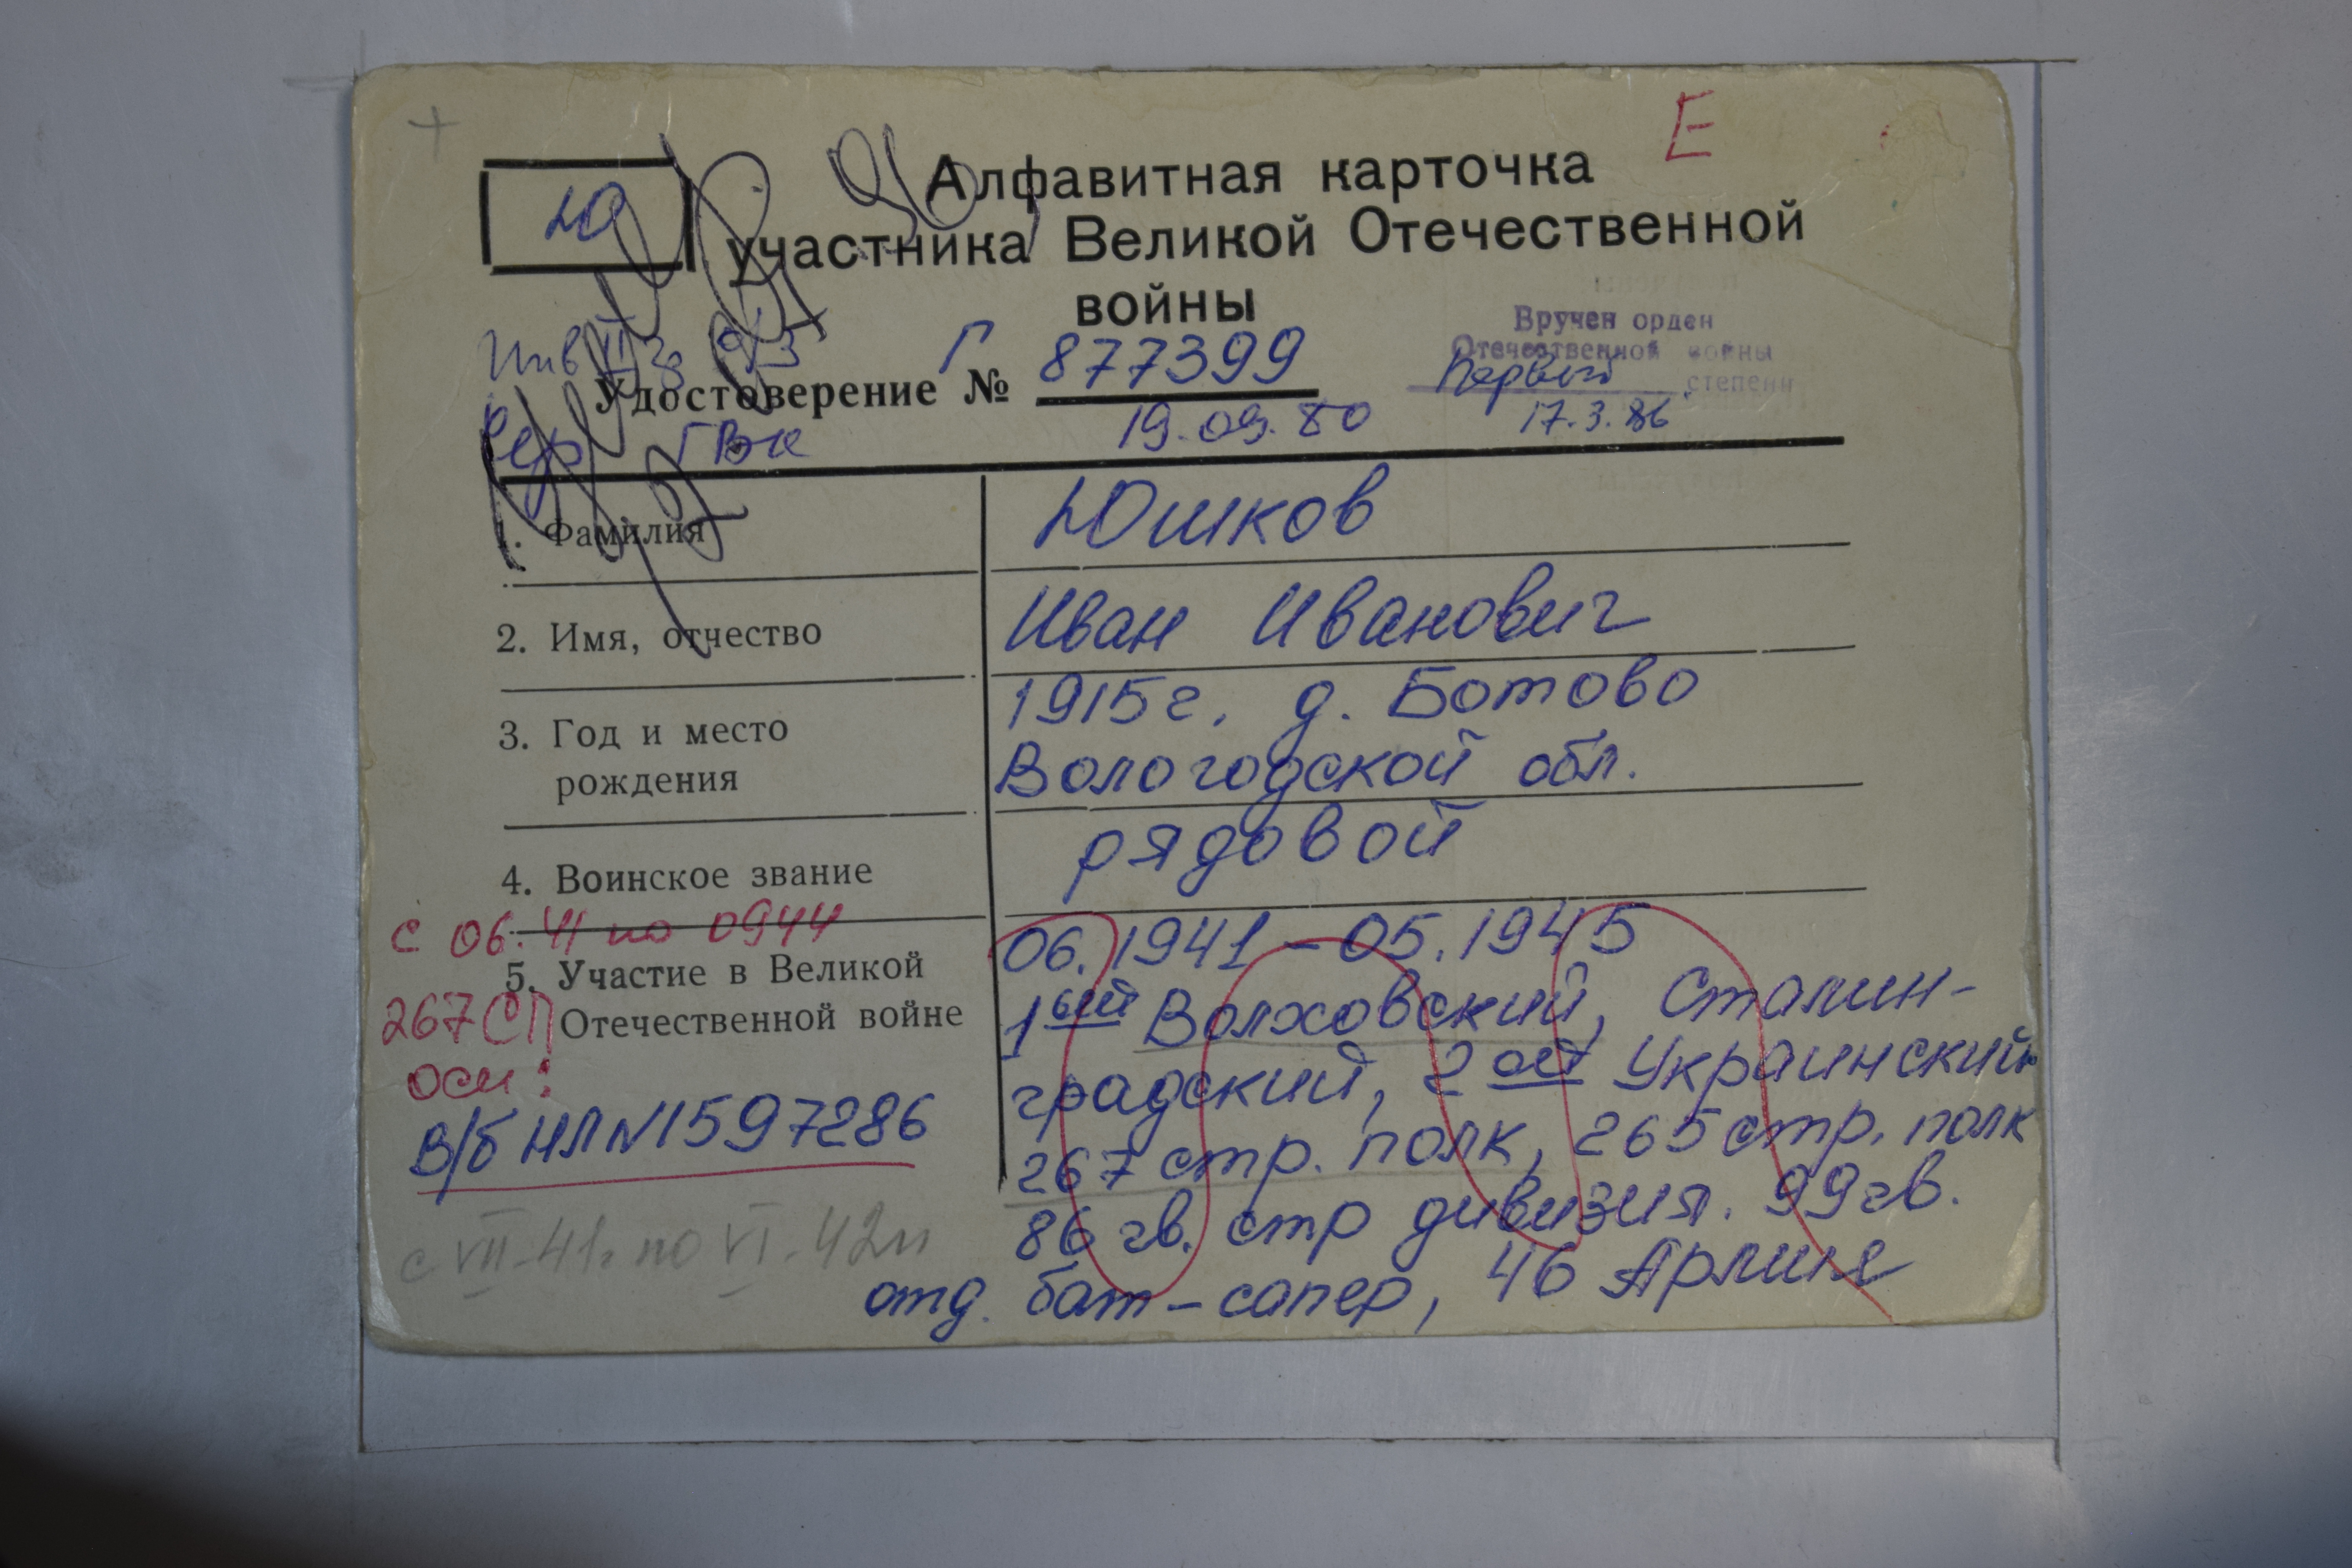 Е
Ю
Алфавитная карточка
участника Великой Отечественной
войны
Инв II гр
Удостоверение № Г 877399
19.09.80
Вручен орден
Отечественной войны
Первый степени
17.3.86
ГВК
1. Фамилия Юшков
2. Имя, отчество Иван Иванович
3. Год и место рождения 1915г. д. Ботово
Вологодской обл.
4. Воинское звание рядовой
с 06.41 по 0944
5. Участие в Великой Отечественной войне 06.1941-05.1945
267 СП
осн:
В/б НЛ № 1597286
с VII-41г по VI.42г
1ый Волховский, Сталин-
градский, 2ой Украинский
267 стр. полк, 265 стр. полк
86 гв. стр дивизия. 99 гв.
отд. бат-сапер, 46 Армия